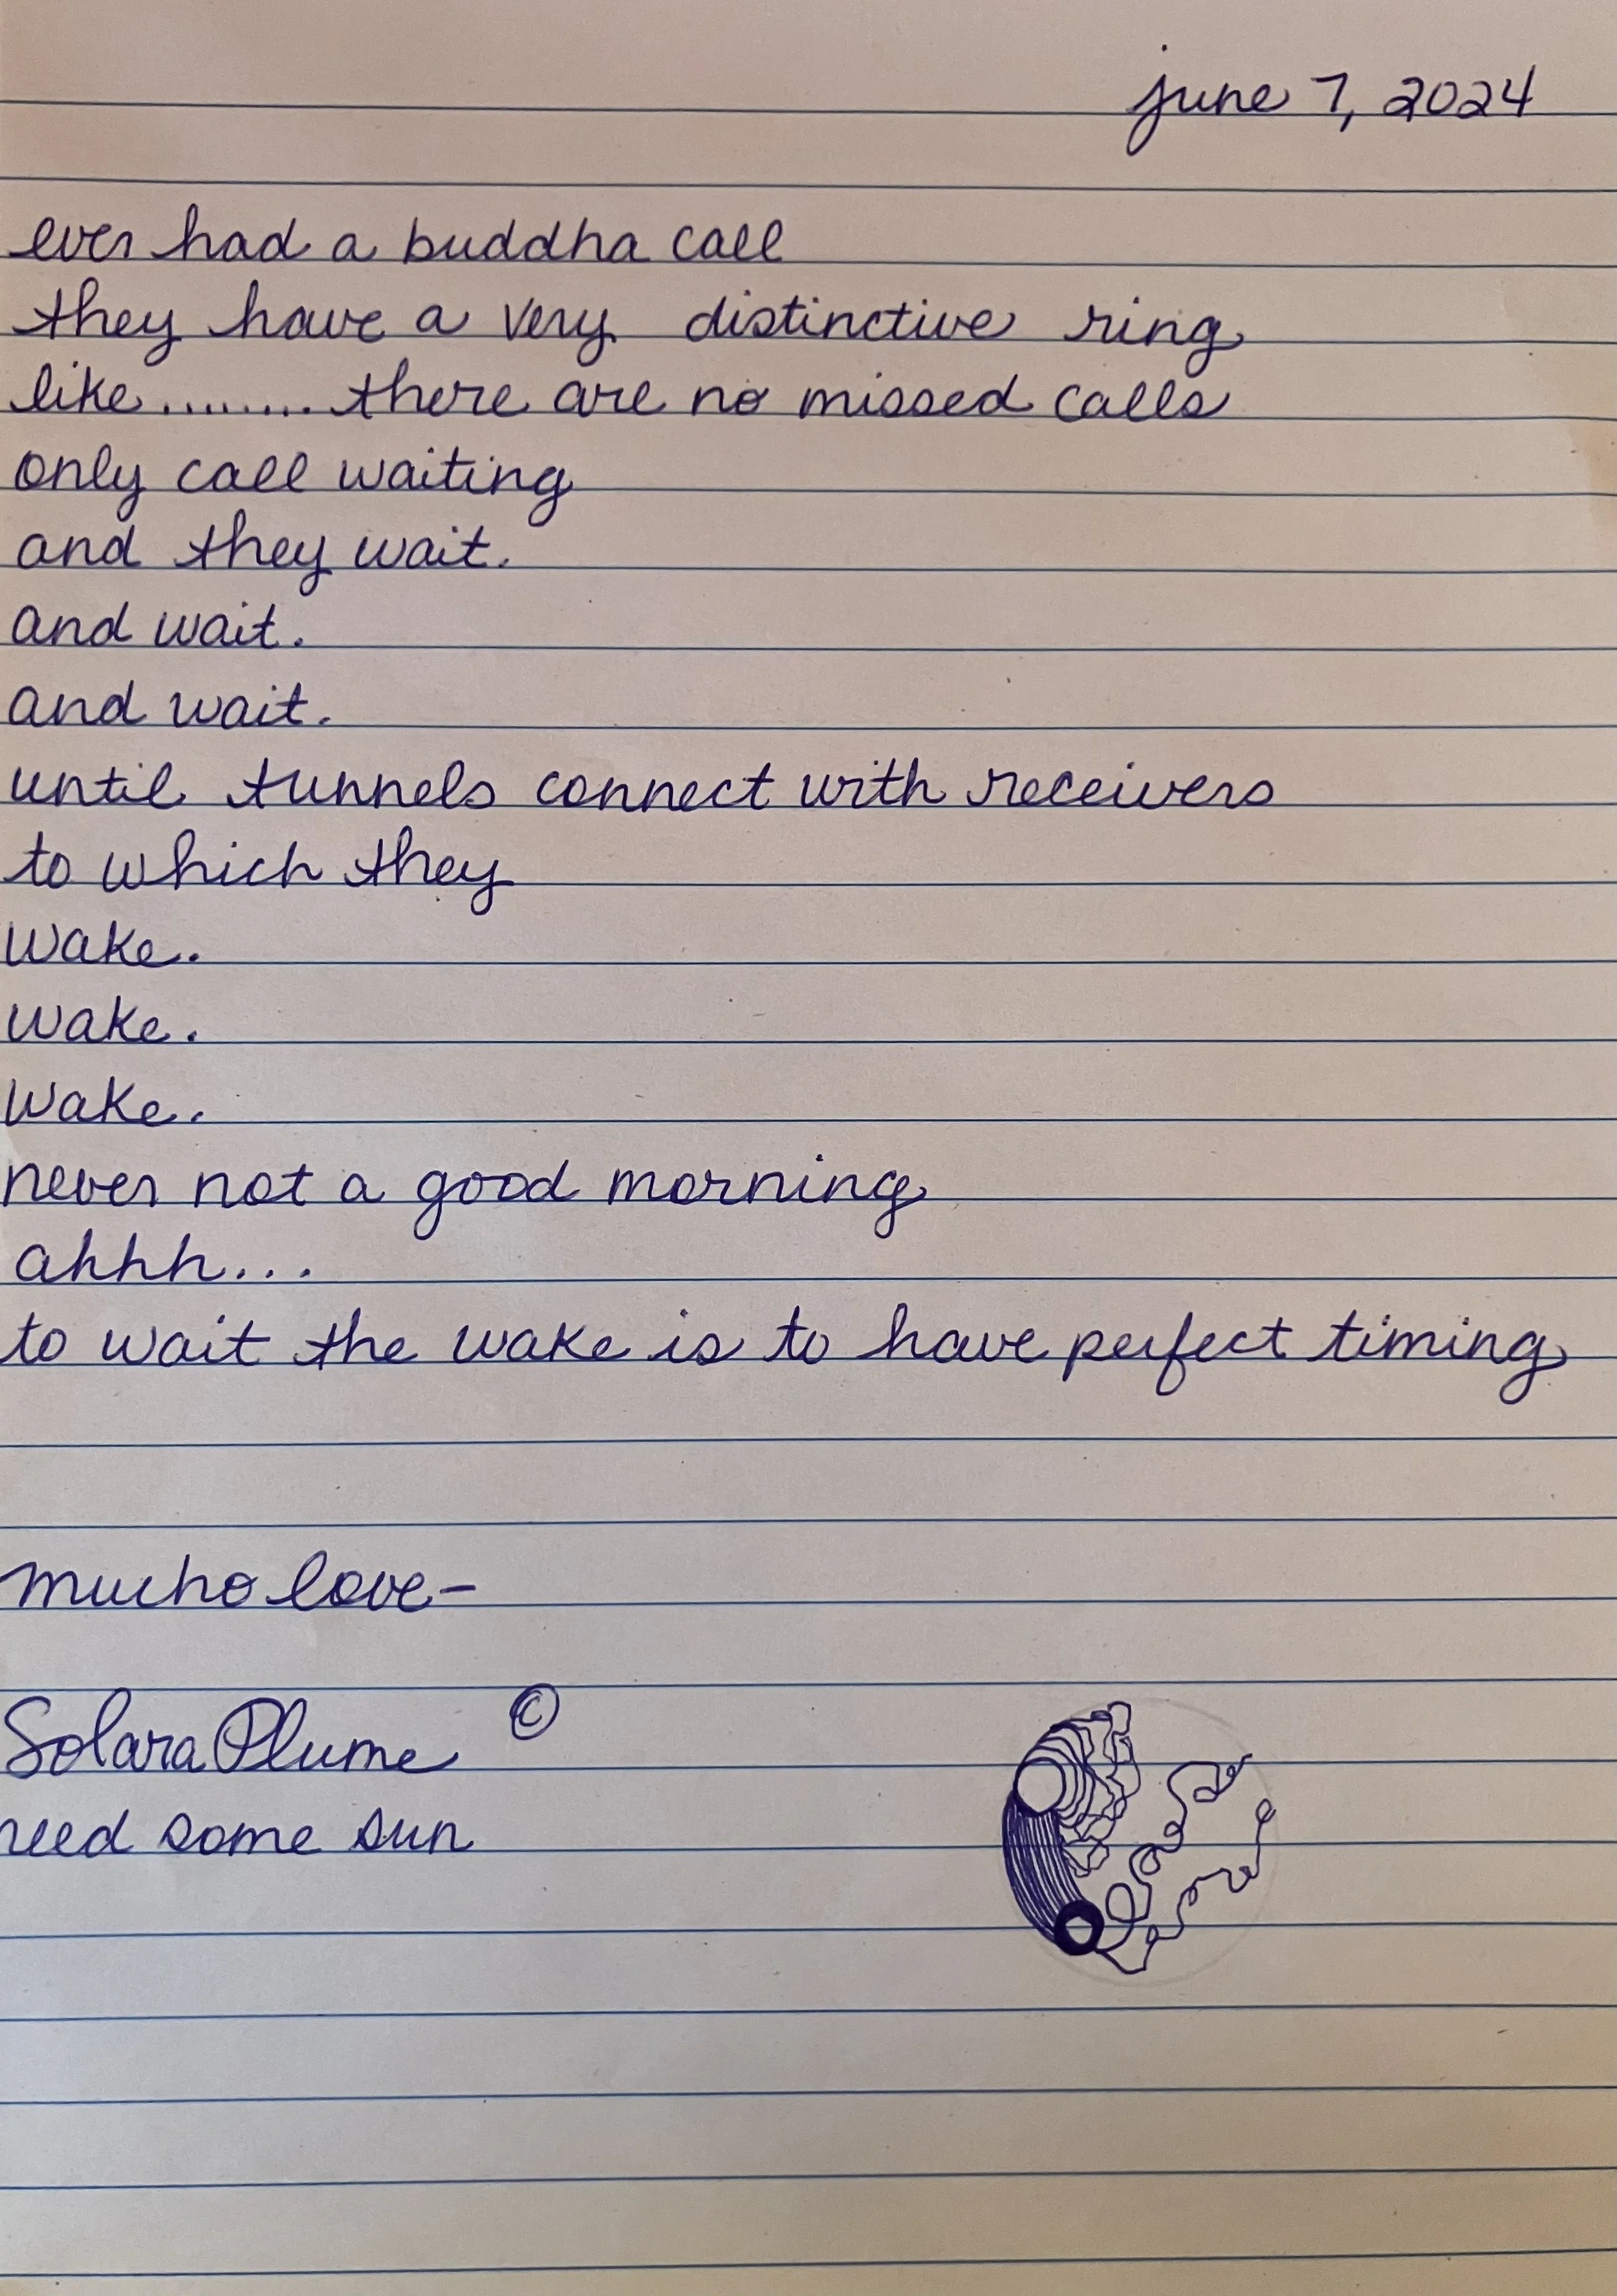 june 7, 2024
ever had a buddha call
they have a very distinctive ring
like........there are no missed calls
only call waiting
and they wait.
and wait.
and wait.
until tunnels connect with receivers
to which they
wake.
wake.
wake.
never not a good morning
ahhh...
to wait the wake is to have perfect timing
mucho love-
Solara Plume ©
need some sun